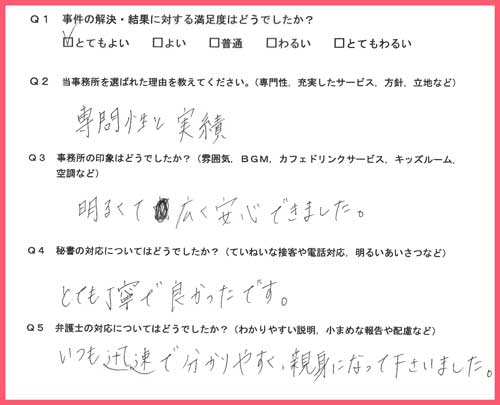 Q1 事件の解決・結果に対する満足度はどうでしたか?
☑とてもよい □よい □普通 □わるい □とてもわるい
Q2 当事務所を選ばれた理由を教えてください。(専門性,充実したサービス,方針,立地など)
専門性と実績
Q3 事務所の印象はどうでしたか?(雰囲気,BGM,カフェドリンクサービス,キッズルーム,
空調など)
明るくて広く安心できました。
Q4 秘書の対応についてはどうでしたか?(ていねいな接客や電話対応,明るいあいさつなど)
とても丁寧で良かったです。
Q5 弁護士の対応についてはどうでしたか?(わかりやすい説明,小まめな報告や配慮など)
いつも迅速で分かりやすく、親身になって下さいました。